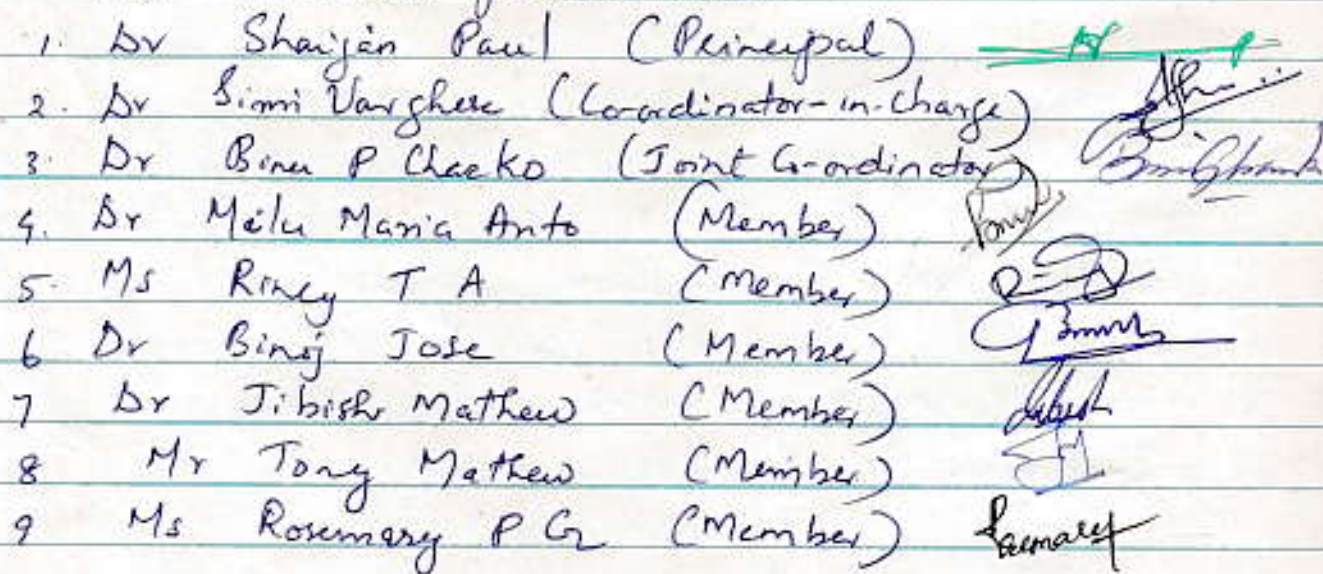 1. Dr Shaijan Paul (Principal)
2. Dr Simi Varghese (Co-ordinator-in-Charge)
3. Dr Binu P Chacko (Joint Co-ordinator)
4. Dr Milu Maria Anto (Member)
5. Ms Rincy T A (Member)
6 Dr Binoj Jose (Member)
7 Dr Jibish Mathew (Member)
8 Mr Tony Mathew (Member)
9 Ms Rosemary P G (Member)